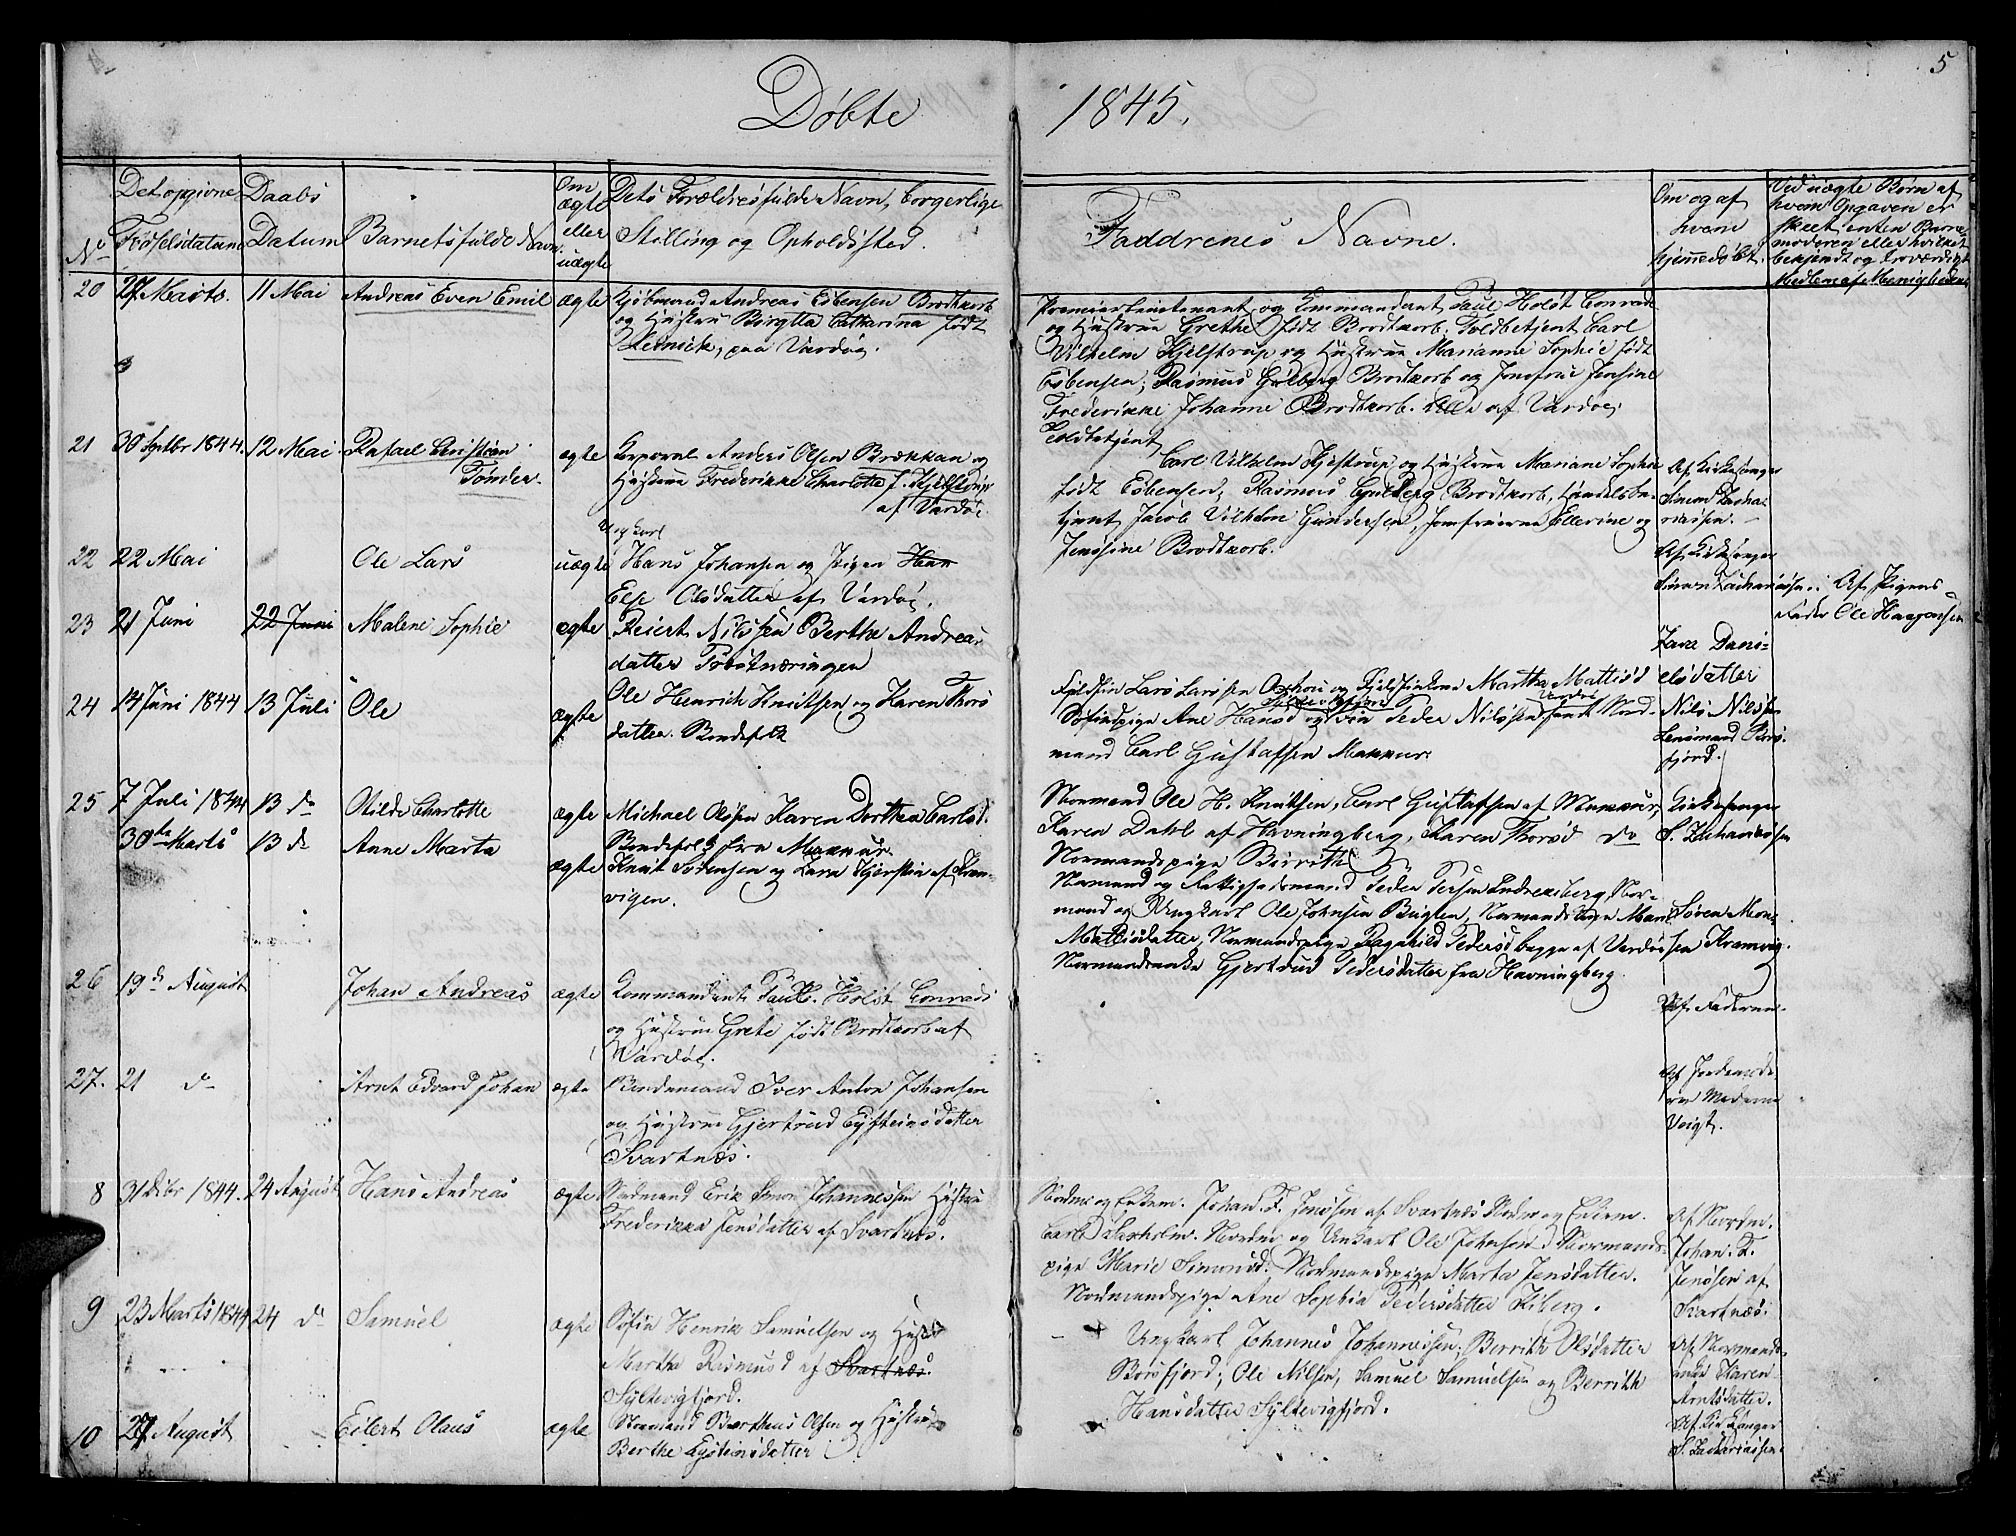 5
Døbte 1845.
No
Det opgivne Fødselsdatum
Daabs Datum
Barnets fulde Navn
Om ægte eller uægte
Dets Forældres fulde Navn, borgerlige
Stilling og Opholdssted.
Faddrenes Navne.
Om og af hvem hjemmedøbt.
Ved uægte Børn af
hvem Opgaven er
skeet enten Barne-
moderen eller hvilket
bekjendt og troværdigt
Medlem af Menigheden
20 27 Marts. 11 Mai Andreas Even Emil ægte Kjøbmand Andreas Esbensen Brodtkorb
og Hustru Birgitta Catharina født
paa Vardøe.
Premierlieutenant og Commandant Paul Holst Conradi
og Hustrue Grethe født Brodtkorb. Toldbetjent Carl
Vilhelm Kjelstrup og Hustrue Marianne Sophie født
Esbensen; Rasmus Gulberg Brodtkorb og Jomfrue Jensine
Frederikke Johanne Brodtkorb. Alle af Vardøe.
21 30 Septbr 1844. 12 Mai Rafael Christian
Tønder.
ægte Corporal Anders Olsen Brækkan og
Hustrue Frederikke Charlotte f. Kjelstrup
af Vardøe
Toldbetjent
Carl Vilhelm Kjelstrup og Hustrue Mariane Sophie
født Esbensen, Rasmus Gulberg Brodtkorb, Handelsbe-
tjent Jacob Vilhelm Gundersen, Jomfruerne Ellerine og
Jensine Brodtkorb.
Af Kirkesanger
Simon Zacha-
riassen.
22 22 Mai Ole Lars uægte Ungkarl
Hans Johansen og Pigen Han
Else Olsdatter af Vardøe.
Af Kirkesanger
Simon Zachariassen. Af Pigens
Fader Ole Haagensen
23 21 Juni 22 Juni Malene Sophie ægte Reiert Nilssen Berthe Andreas
datter
Zara Dani-
elsdatter
24 14 Juni 1844 13 Juli Ole ægte Ole Henrich Knudtsen og Karen Thors
datter. Bondefolk
Fjeldfin Lars Larssen og Fjeldfinkone Martha Mattisd
Søfindpige Ane Hansd og Peder Nilssen Nord-
mand Carl Gustafsen Makkur.
Nils Nilssen
Lensmand Bors-
fjord.
25 7 Juli 1844 13 do Otilde Charlotte ægte Michael Olssen Karen Dorthea Carlsd.
Bondefolk fra Makkur
Normand Ole H. Knutsen, Carl Gustafsen af Makkur,
Karen Dahl af Havningberg, Karen Thorsd do
Normandspige Berrith
Kirkesanger
S. Zachariassen
30te Marts 13 do Anne Marta ægte Knut Sørensen og Lava Kjerstin af Kram-
vigen.
Normand og Fattigforstander Peder Persen Nor-
mand og Ungkarl Ole Johnsen Bugten, Normandspige Maria
Mattisdatter, Normandspige Ragnhild Pedersd begge af Vardøe
Normandsenke Gjertrud Pedersdatter fra Havningberg.
Søren Mon-
sen Kramvig.
26 19de August Johan Andreas ægte Commandant Paul Holst Conradi
og Hustrue Grete født Brodtkorb af
Vardøe.
Af Faderen.
27. 21 do Arnt Edvard Johan ægte Bondemand Iver Anton Johansen
og Hustrue Gjertrud Eysteinsdatter
Svartnæs.
Af Jordemode-
ren Madame
Voigt.
8 31 Dcbr 1844. 24 August Hans Andreas ægte Nordmand Erik Simon Johannessen Hustru
Frederikka Jensdatter af Svartnæs.
Johan F. Jenssen af Svartnæs
Carl Saxholm. Nordm og Unkarl Ole Johnsen Normands-
pige Marie Simonsd. Nordmandspige Marta Jensdatter.
Nordmandspige Ane Sophia Pedersdatter Kiberg.
Af Nordm.
Johan F.
Jenssen af
Svartnæs.
9 23 Marts 1844 24 do Samuel ægte Søfin Henrik Samuelsen og Hustru
Martha Rasmusd af Svartnæs.
Syltevigfjord.
Ungkarl Johannes Johannessen, Berrith Olsdatter
Borsfjord; Ole Nilsen, Samuel Samuelsen og Berrith
Hansdatter Syltevigfjord.
Af Normands-
enke Karen
Arntsdatter.
10 27 August Eilert Olaus ægte Normand Bartheus Olsen og Hustru
Berthe Eysteinsdatter
Af Kirkesanger
S. Zachariassen